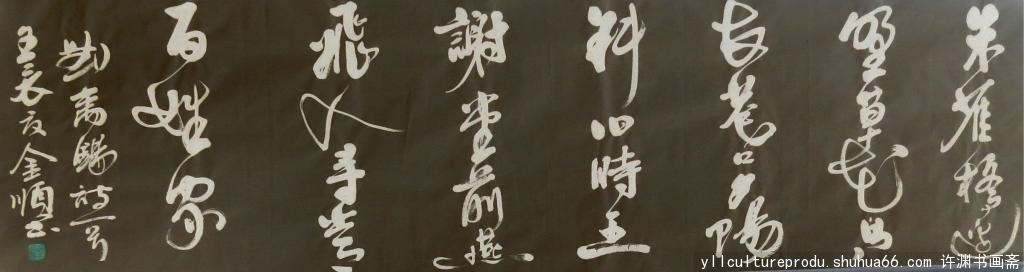 朱雀橋邊
野草花烏
衣巷口夕陽
斜旧時王
謝堂前燕
飛入尋常
百姓家
劉禹錫詩一首
壬辰夏金順书
yllcultureprodu.shuhua66.com 许渊书画斋